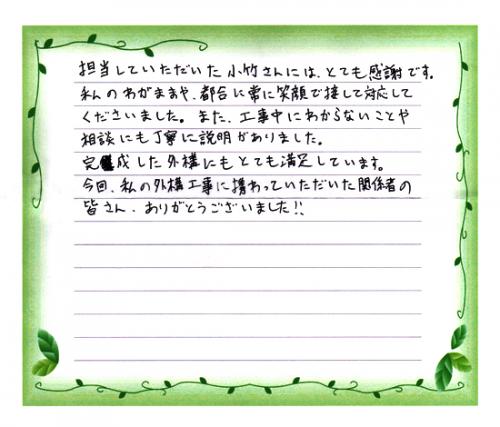 担当していただいた小竹さんには、とても感謝です。
私のわがままや、都合に常に笑顔で接して対応して
くださいました。また、工事中にわからないことや
相談にも丁寧に説明がありました。
完成した外構にもとても満足しています。
今回、私の外構工事に携わっていただいた関係者の
皆さん、ありがとうございました!!